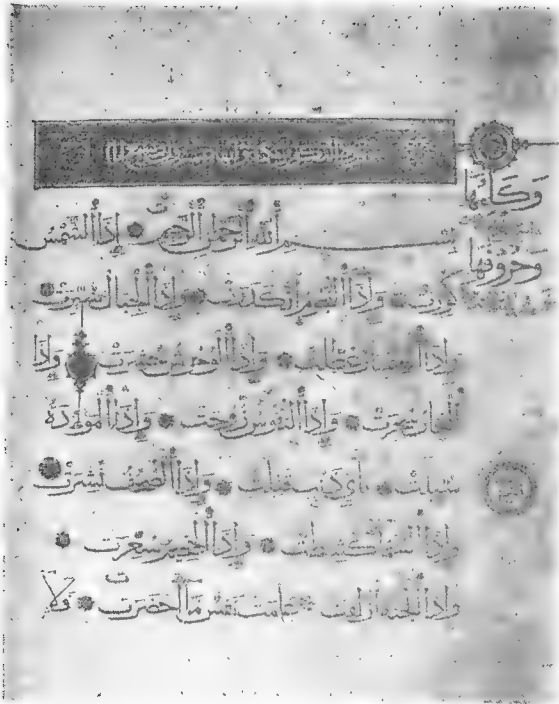 وحروفها
بسم الله الرحمن الرحيم إذا الشمس
كورت وإذا النجوم انكدرت وإذا الجبال سيرت
وإذا العشار عطلت وإذا الوحوش حشرت وإذا
البحار سجرت وإذا النفوس زوجت وإذا الموءدة
سئلت بأي ذنب قتلت وإذا الصحف نشرت
وإذا السماء كشطت وإذا الجحيم سعرت
وإذا الجنة أزلفت علمت نفس ما أحضرت فلا